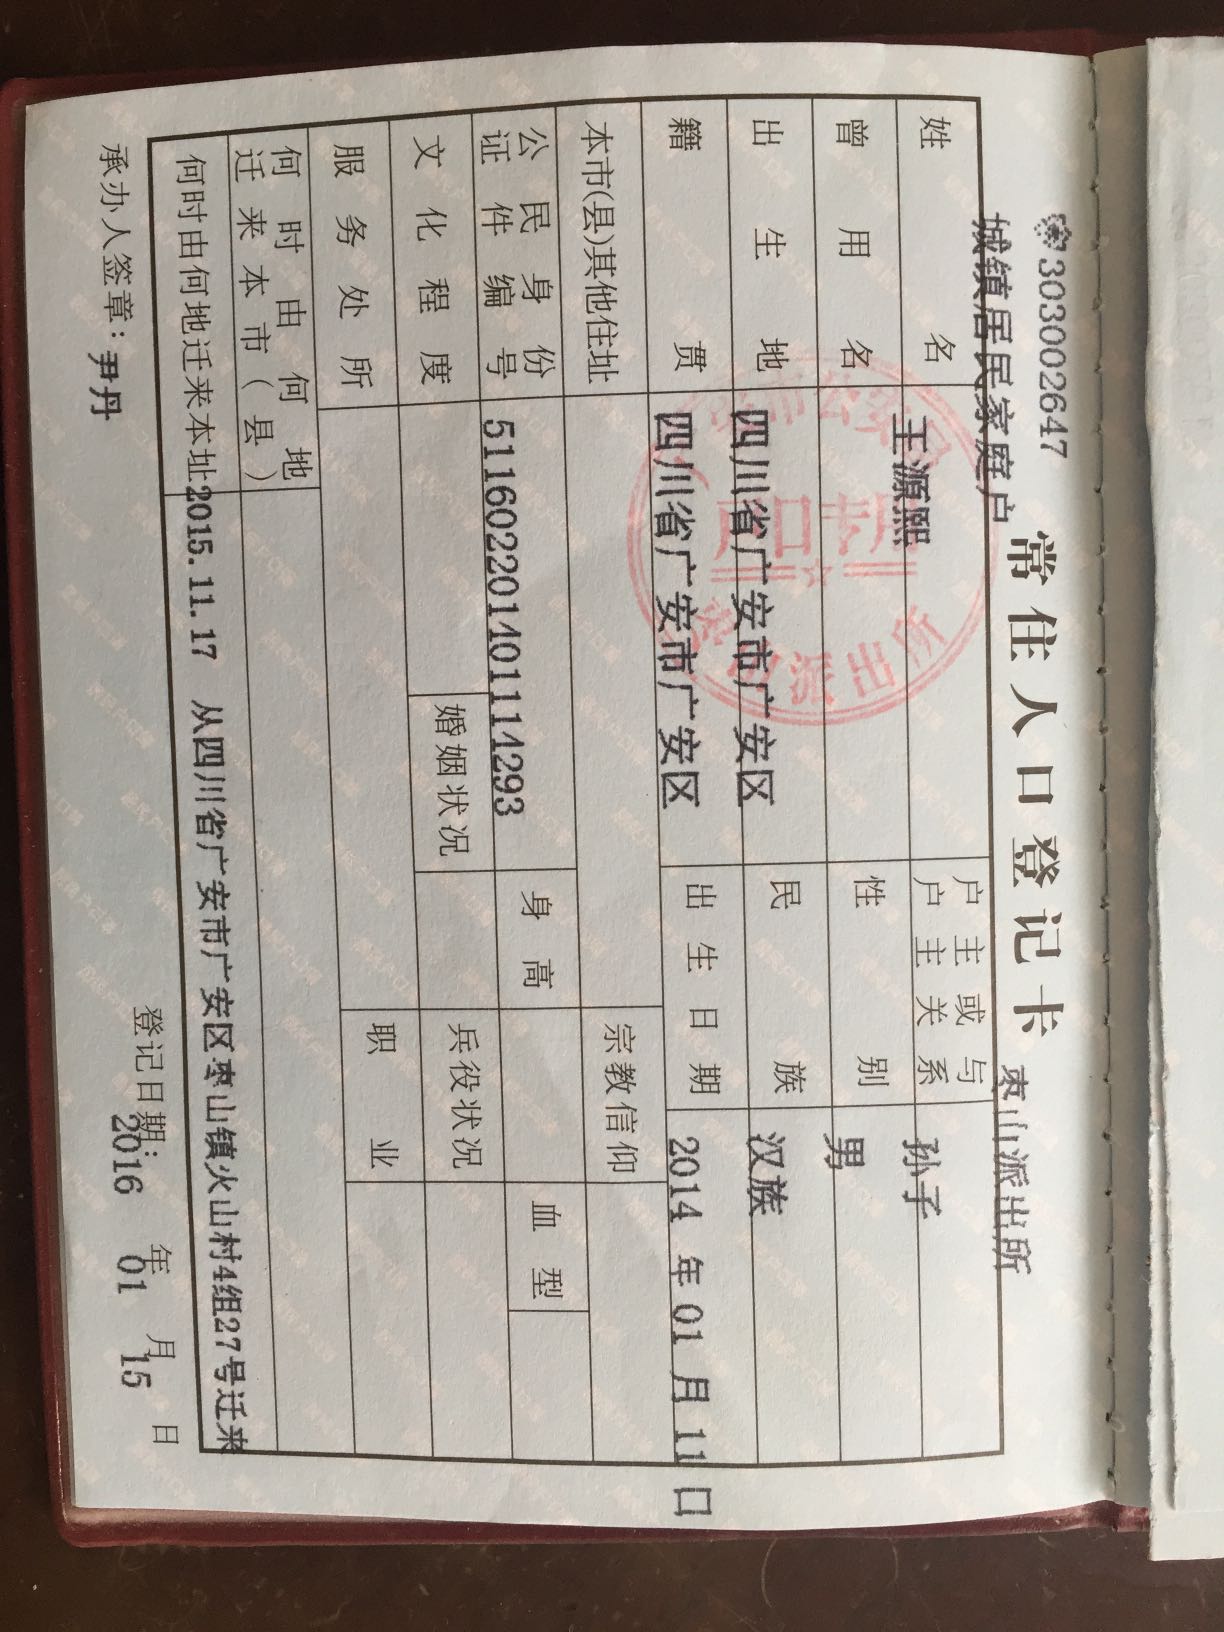 303002647
城镇居民家庭户
常住人口登记卡
枣山派出所
姓名 王源熙 户主或与户主关系 孙子
曾用名 性别 男
出生地 四川省广安市广安区 民族 汉族
籍贯 四川省广安市广安区 出生日期 2014 年 01 月 11 日
本市(县)其他住址 宗教信仰
公民身份证件编号 511602201401114293 身高 血型
文化程度 婚姻状况 兵役状况
服务处所 职业
何时由何地迁来本市(县)
何时由何地迁来本址 2015.11.17 从四川省广安市广安区枣山镇火山村4组27号迁来
承办人签章: 尹丹 登记日期: 2016 年 01 月 15 日
户口专用
派出所